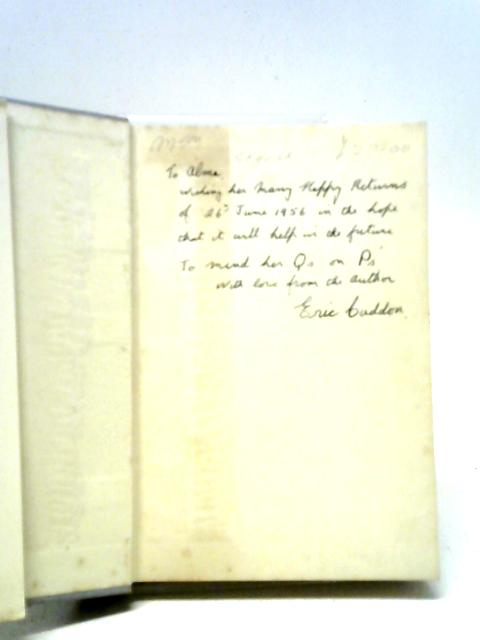 To Alma
wishing her Many Happy Returns
of 26th June 1956 in the hope
that it will help in the future
To mind her Qs on Ps
with love from the author
Eric Cuddon